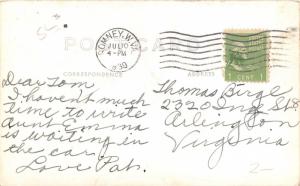 ROMNEY, W.VA.
JUL 10
4-PM
1939
POST CARD
CORRESPONDENCE
ADDRESS
1 CENT 1
Dear Tom
I haven't much
time to write
Aunt Emma
is waiting in
the car.
Love Pat.
Thomas Birge
2320 Ind. St. S
Arlington
Virginia
2-